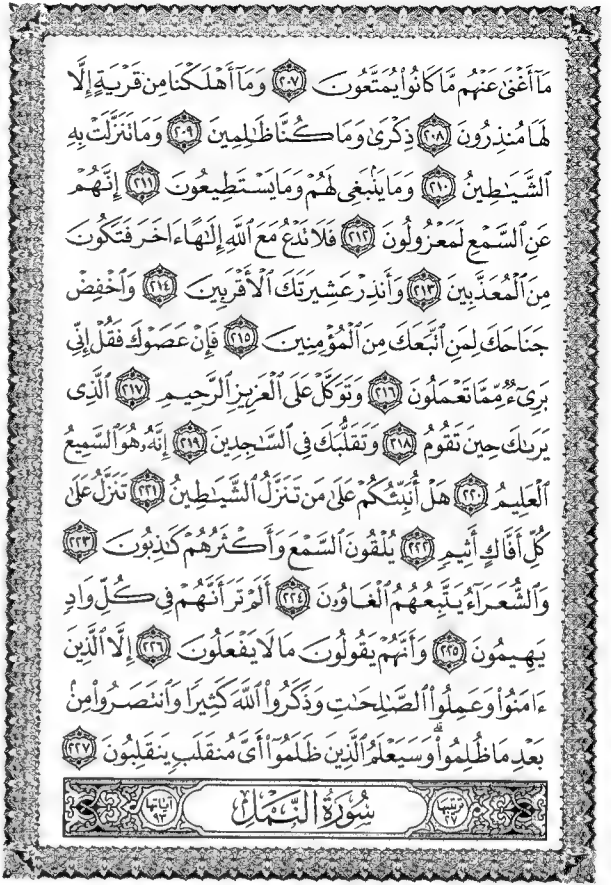 مَآ أَغْنَىٰ عَنْهُم مَّا كَانُوا۟ يُمَتَّعُونَ ٢٠٧ وَمَآ أَهْلَكْنَا مِن قَرْيَةٍ إِلَّا
لَهَا مُنذِرُونَ ٢٠٨ ذِكْرَىٰ وَمَا كُنَّا ظَـٰلِمِينَ ٢٠٩ وَمَا تَنَزَّلَتْ بِهِ
ٱلشَّيَـٰطِينُ ٢١٠ وَمَا يَنۢبَغِى لَهُمْ وَمَا يَسْتَطِيعُونَ ٢١١ إِنَّهُمْ
عَنِ ٱلسَّمْعِ لَمَعْزُولُونَ ٢١٢ فَلَا تَدْعُ مَعَ ٱللَّهِ إِلَـٰهًا ءَاخَرَ فَتَكُونَ
مِنَ ٱلْمُعَذَّبِينَ ٢١٣ وَأَنذِرْ عَشِيرَتَكَ ٱلْأَقْرَبِينَ ٢١٤ وَٱخْفِضْ
جَنَاحَكَ لِمَنِ ٱتَّبَعَكَ مِنَ ٱلْمُؤْمِنِينَ ٢١٥ فَإِنْ عَصَوْكَ فَقُلْ إِنِّى
بَرِىٓءٌ مِّمَّا تَعْمَلُونَ ٢١٦ وَتَوَكَّلْ عَلَى ٱلْعَزِيزِ ٱلرَّحِيمِ ٢١٧ ٱلَّذِى
يَرَىٰكَ حِينَ تَقُومُ ٢١٨ وَتَقَلُّبَكَ فِى ٱلسَّـٰجِدِينَ ٢١٩ إِنَّهُۥ هُوَ ٱلسَّمِيعُ
ٱلْعَلِيمُ ٢٢٠ هَلْ أُنَبِّئُكُمْ عَلَىٰ مَن تَنَزَّلُ ٱلشَّيَـٰطِينُ ٢٢١ تَنَزَّلُ عَلَىٰ
كُلِّ أَفَّاكٍ أَثِيمٍ ٢٢٢ يُلْقُونَ ٱلسَّمْعَ وَأَكْثَرُهُمْ كَـٰذِبُونَ ٢٢٣
وَٱلشُّعَرَآءُ يَتَّبِعُهُمُ ٱلْغَاوُۥنَ ٢٢٤ أَلَمْ تَرَ أَنَّهُمْ فِى كُلِّ وَادٍ
يَهِيمُونَ ٢٢٥ وَأَنَّهُمْ يَقُولُونَ مَا لَا يَفْعَلُونَ ٢٢٦ إِلَّا ٱلَّذِينَ
ءَامَنُوا۟ وَعَمِلُوا۟ ٱلصَّـٰلِحَـٰتِ وَذَكَرُوا۟ ٱللَّهَ كَثِيرًا وَٱنتَصَرُوا۟ مِنۢ
بَعْدِ مَا ظُلِمُوا۟ ۗ وَسَيَعْلَمُ ٱلَّذِينَ ظَلَمُوٓا۟ أَىَّ مُنقَلَبٍ يَنقَلِبُونَ ٢٢٧
ترتيبها ٢٧ سُورَةُ النَّمْلِ آياتها ٩٣